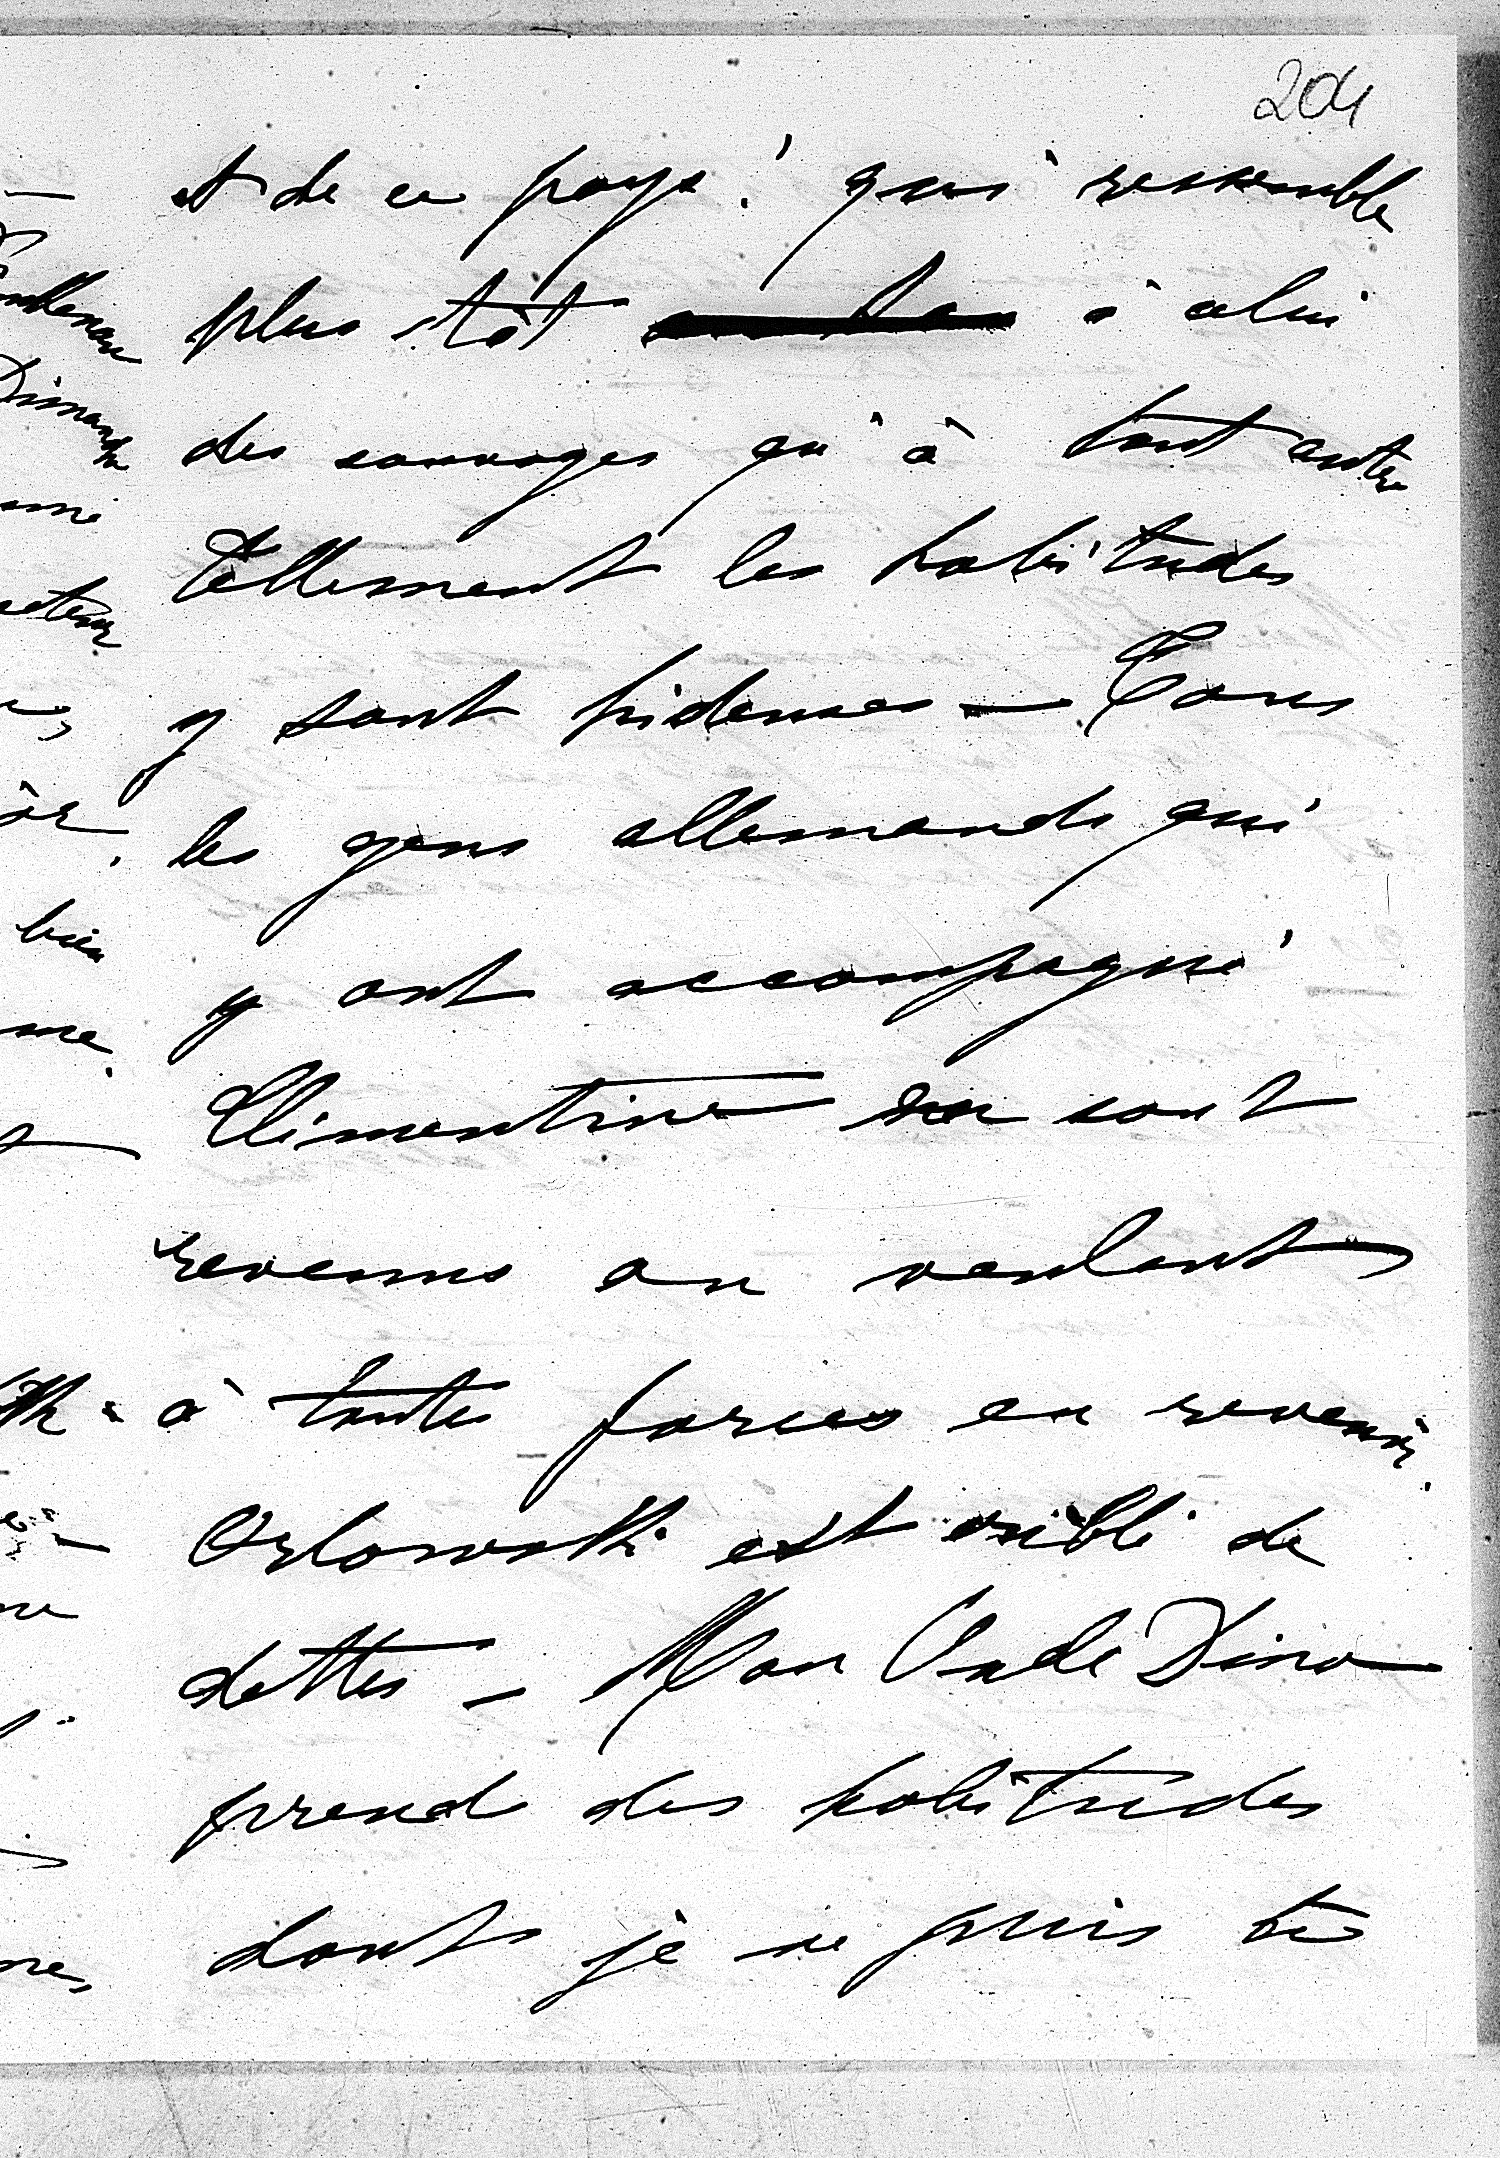 204
et de ce pays! qui ressemble
plus tôt à celui
des sauvages qu'à tout autre
tellement les habitudes
y sont hideuses — Tous
les gens allemands qui
y ont accompagné
Clémentine en sont
revenus en voulant
à toutes forces en revenir.
Orlowski est criblé de
dettes — Mon Oncle Dino
prend des habitudes
dont je ne puis te